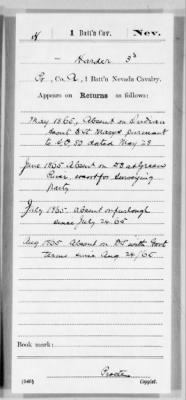 H | 1 | Batt'n Cav. | Nev.
Harder 3d
Co. A, 1 Batt'n Nevada Cavalry.
Appears on Returns as follows:
May 1865, Absent on Indian
Scout pursuant
to S.O. 50 dated May 23
June 1865 Absent on DS at Green
River escort for surveying
party
July 1865 Absent on furlough
since July 24. 65
Aug 1865 Absent on DS with Govt
teams since Aug 24, 65
Book mark:
Copyist.